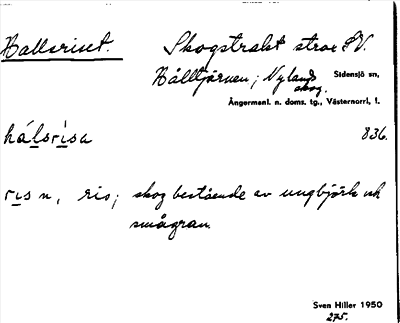 Hallsriset. Skogstrakt strax SV.
Hålltjärnen; Nylands Sidensjö sn,
skog.
Ångermanl. n. doms. tg., Västernorrl. l.
hálsrisa 836.
ris n, ris; skog bestående av ungbjörk och
smågran.
Sven Hiller 1950
275.